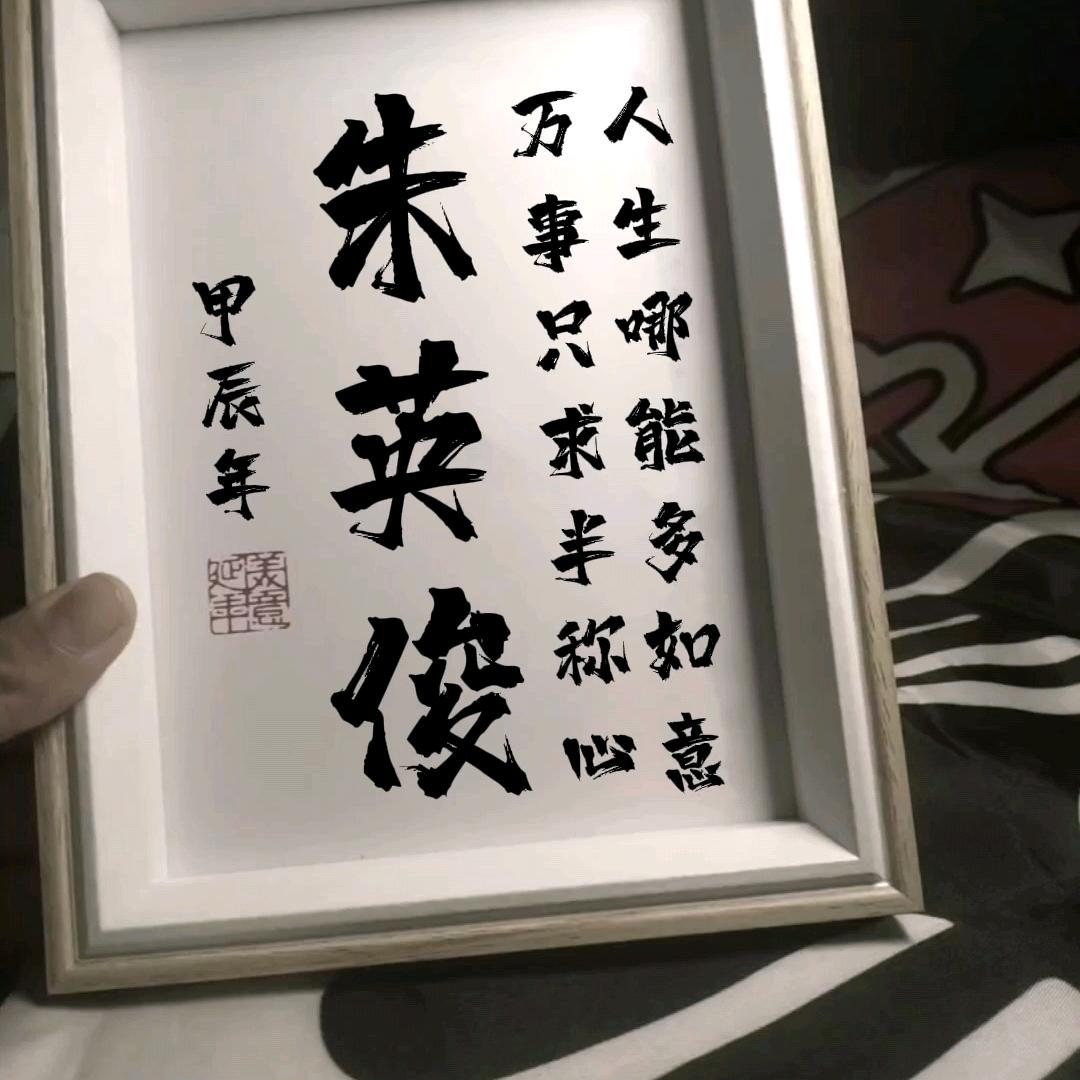 人生哪能多如意
万事只求半称心
朱英俊
甲辰年
美意
延年